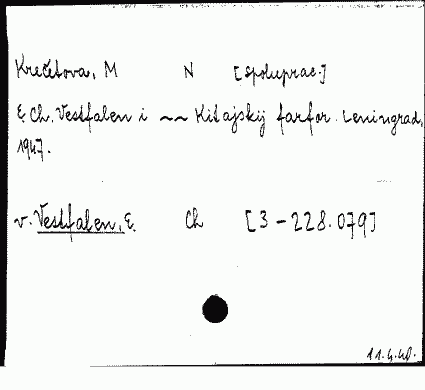 Krečetova, M N [spoluprac.]
E. Ch. Vestfalen i ~~ Kitajskij farfor. Leningrad,
1947.
v. Vestfalen, E. Ch [3-228.079]